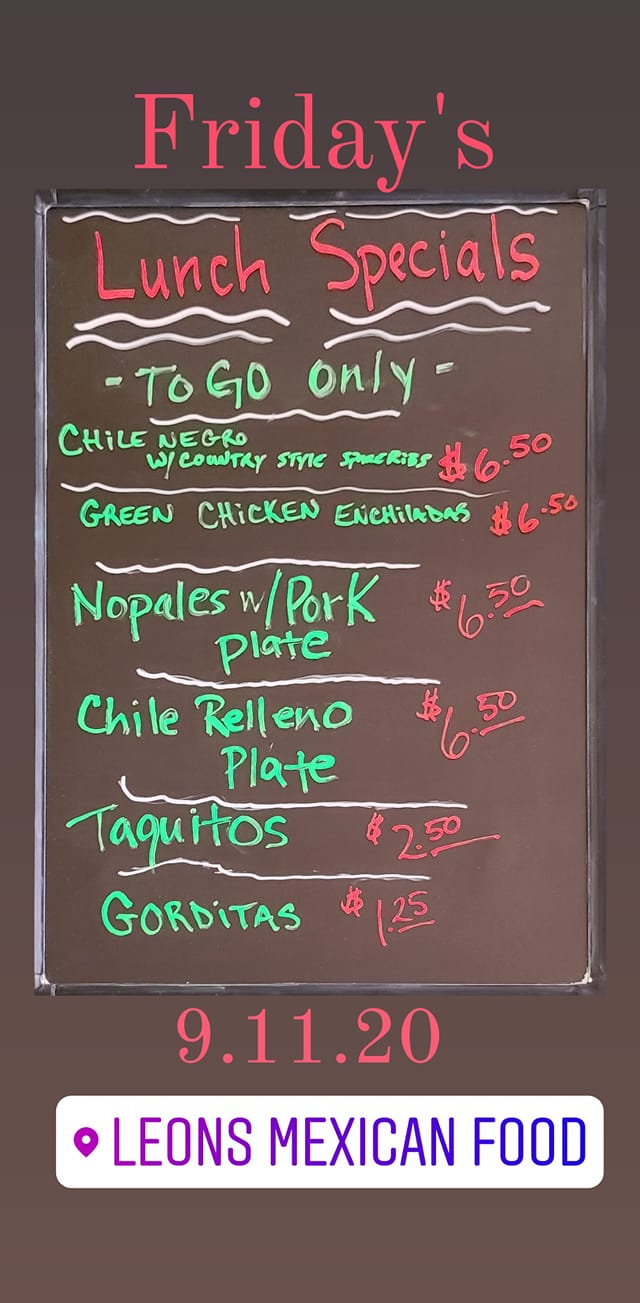 Friday's
Lunch Specials
- To Go Only -
CHILE NEGRO
W/ COUNTRY STYLE SPARERIBS $6.50
GREEN CHICKEN ENCHILADAS $6.50
Nopales w/Pork $6.50
Plate
Chile Relleno $6.50
Plate
Taquitos $2.50
GORDITAS $1.25
9.11.20
LEONS MEXICAN FOOD